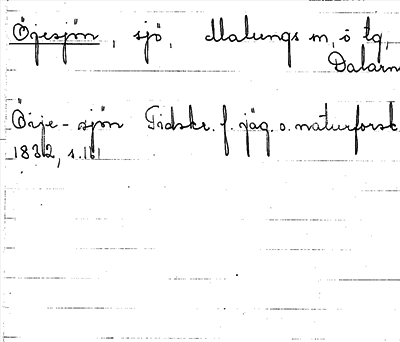 Öjesjön, sjö, Malungs sn, ö tg,
Dalarn
Öije-sjön Tidskr. f. jäg. o. naturforsk.
1832, s. 161